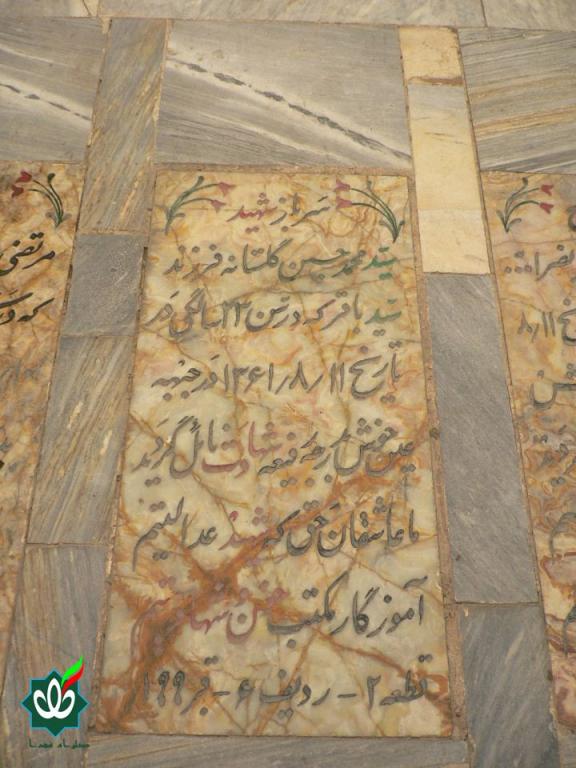 سرباز شهید
سید محمد حسین گلستانه فرزند
سید باقر که در سن ۲۳ سالگی در
تاریخ ۱۳۶۱/۸/۱۱ در جبهه
عین خوش بدرجه رفیعه شهادت نائل گردید
ما عاشقان حق که شهید عدالتیم
آموزگار مکتب خون و شهادتیم
قطعه ۲ - ردیف ۶ - قبر ۱۹۹
مرتضی
که در